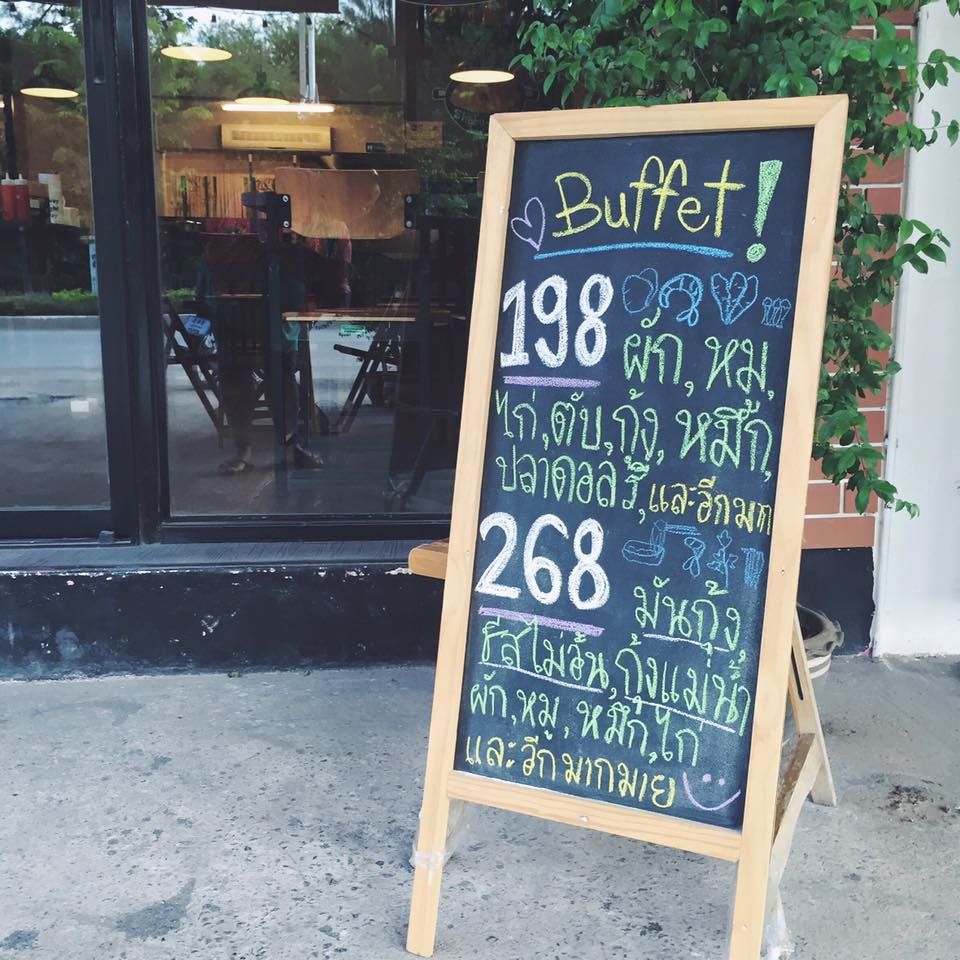 Buffet!
198 ผัก, หมู,
ไก่, ตับ, กุ้ง, หมึก,
ปลาดอลรี่, และอีกมาก
268 มันกุ้ง,
ชีสไม่อั้น, กุ้งแม่น้ำ
ผัก, หมู, หมึก, ไก่
และอีกมากมาย